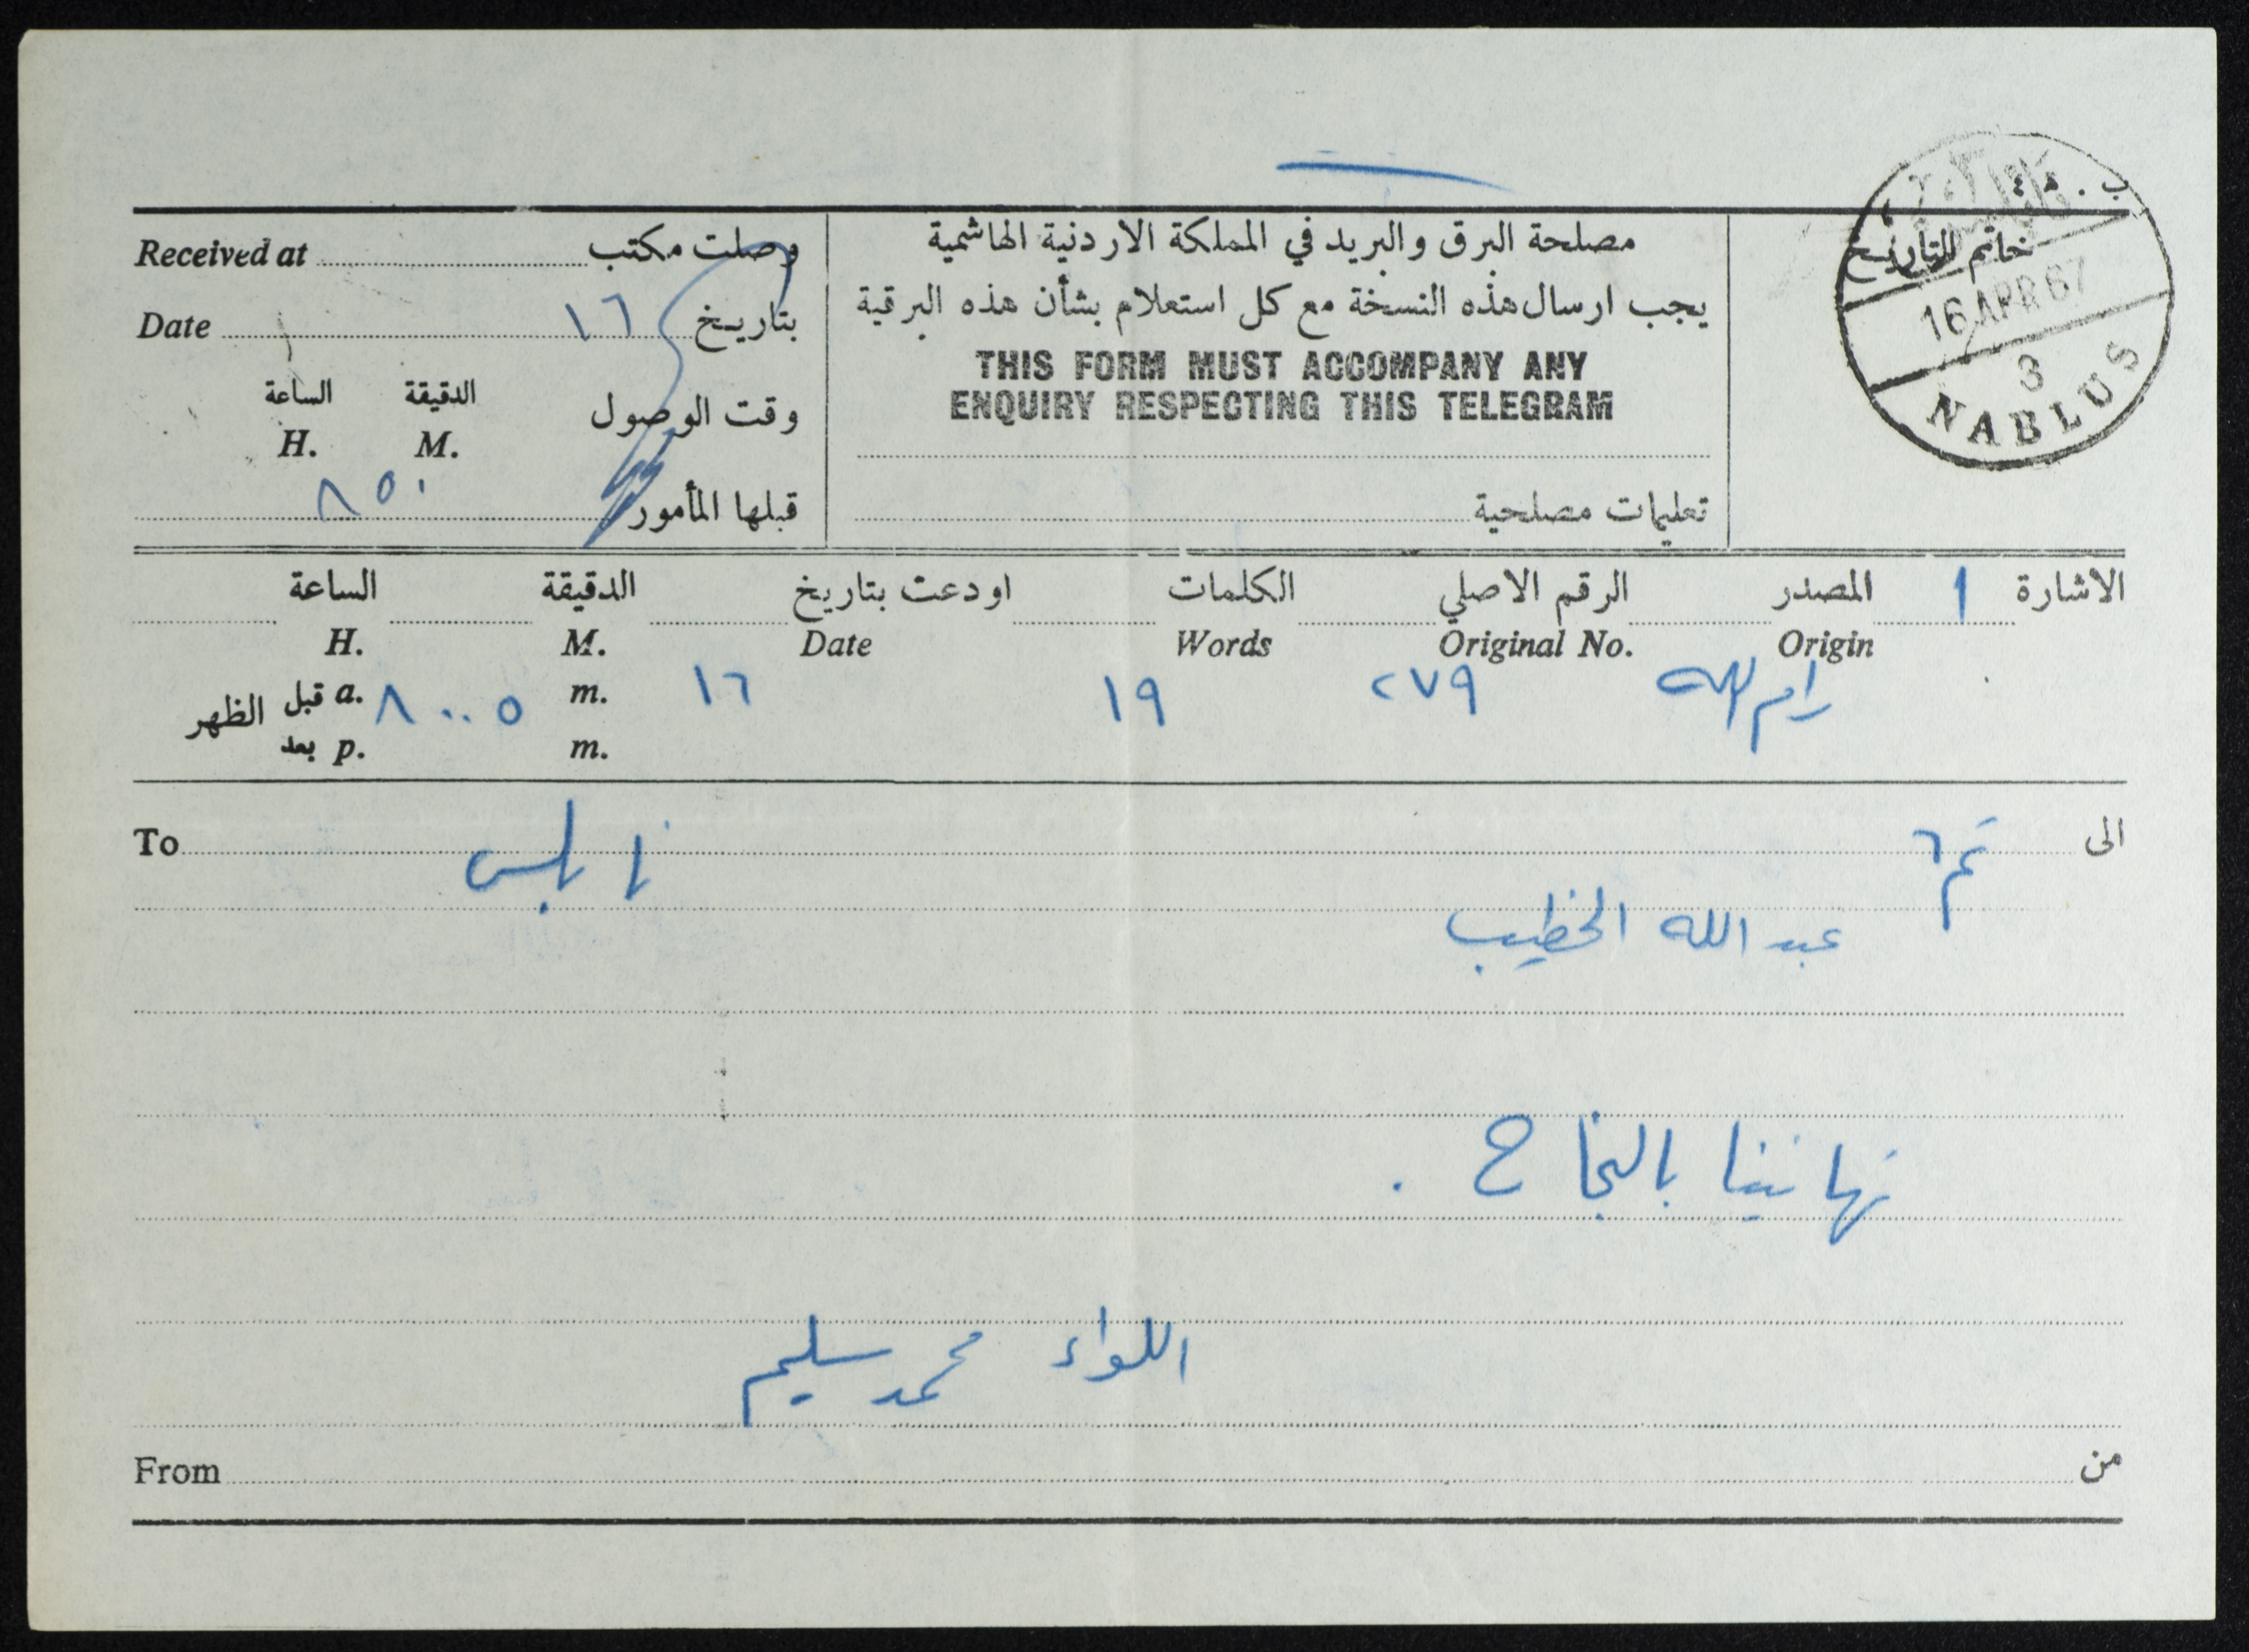 Received at وصلت مكتب
Date ١٦ بتاريخ
الساعة الدقيقة
H. M. وقت الوصول
٨٥٠ قبلها المأمور
مصلحة البرق والبريد في المملكة الاردنية الهاشمية
يجب ارسال هذه النسخة مع كل استعلام بشأن هذه البرقية
THIS FORM MUST ACCOMPANY ANY
ENQUIRY RESPECTING THIS TELEGRAM
تعليمات مصلحية
خاتم التاريخ
16 APR 67
3
NABLUS
الاشارة ١ المصدر الرقم الاصلي الكلمات اودعت بتاريخ الدقيقة الساعة
Origin Original No. Words Date M. H.
رام الله ٢٧٩ ١٩ ١٦ m. ٨٠٠٥ a. قبل الظهر
m. p. بعد
الى نابلس To
عبد الله الخطيب
تهانينا بالنجاح .
اللواء محمد سليم
من From